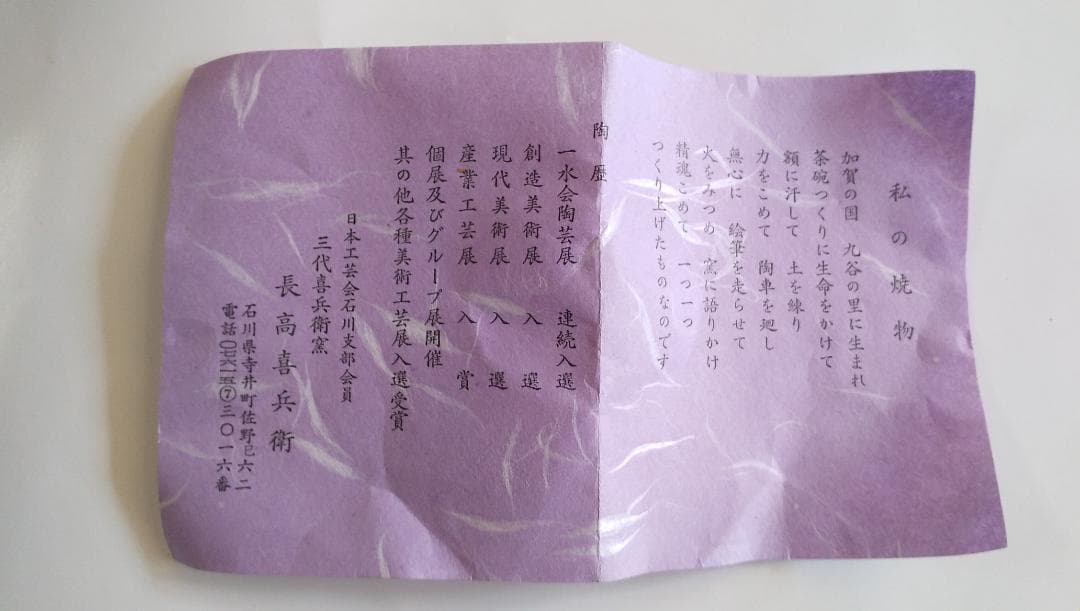 私の焼物
加賀の国　九谷の里に生まれ
茶碗つくりに生命をかけて
額に汗して　土を練り
力をこめて　陶車を廻し
無心に　絵筆を走らせて
火をみつめ　窯に語りかけ
精魂こめて　一つ一つ
つくり上げたものなのです
陶歴
一水会陶芸展　連続入選
創造美術展　入選
現代美術展　入選
産業工芸展　入賞
個展及びグループ展開催
其の他各種美術工芸展入選受賞
日本工芸会石川支部会員
三代喜兵衛窯
長高喜兵衛
石川県寺井町佐野巳六二
電話〇七六一五⑦三〇一六番